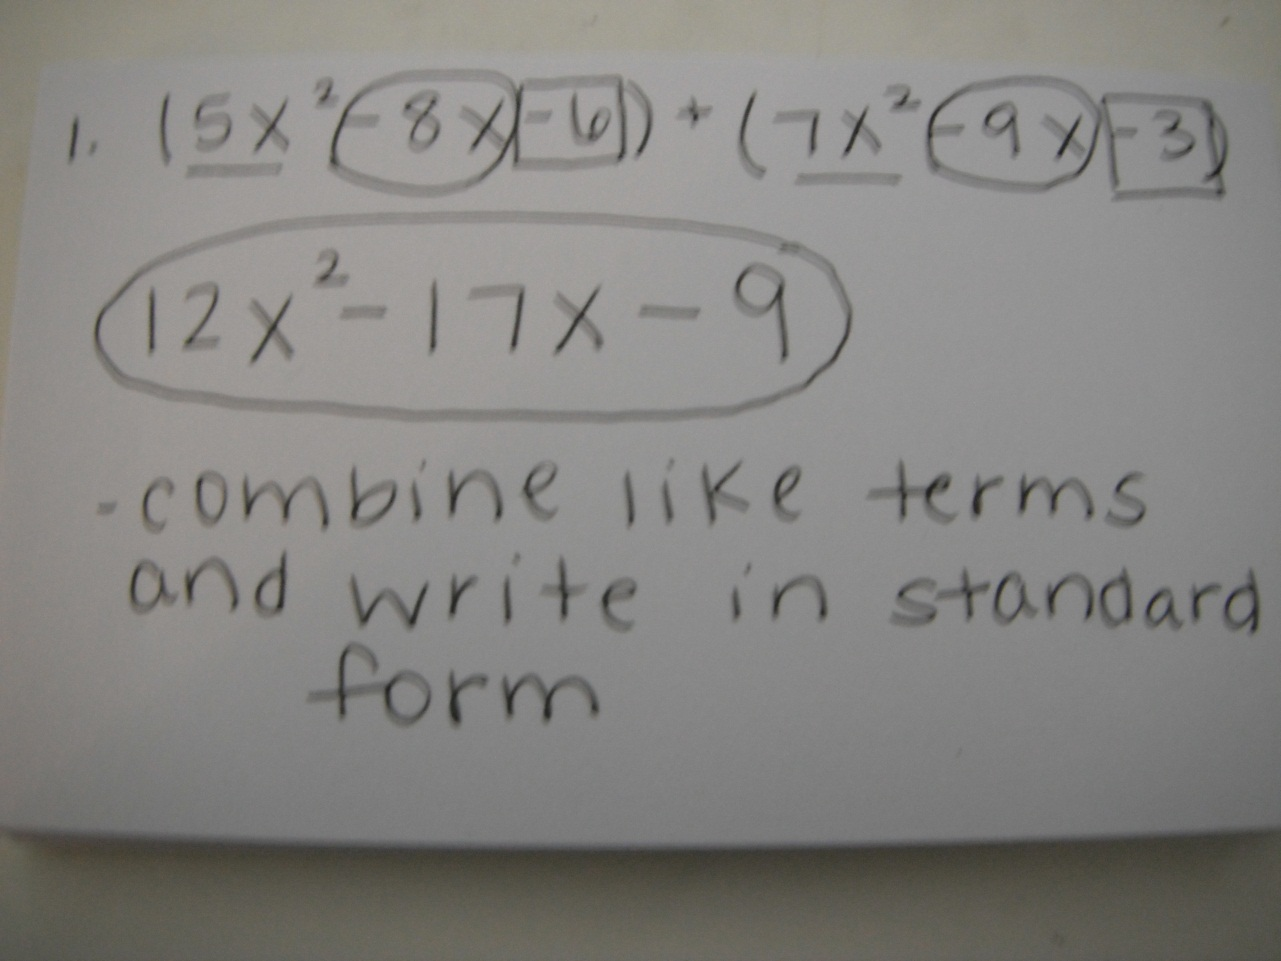 1. (5x² -8x -6) + (7x² -9x -3)
12x² - 17x - 9
-combine like terms
and write in standard
form